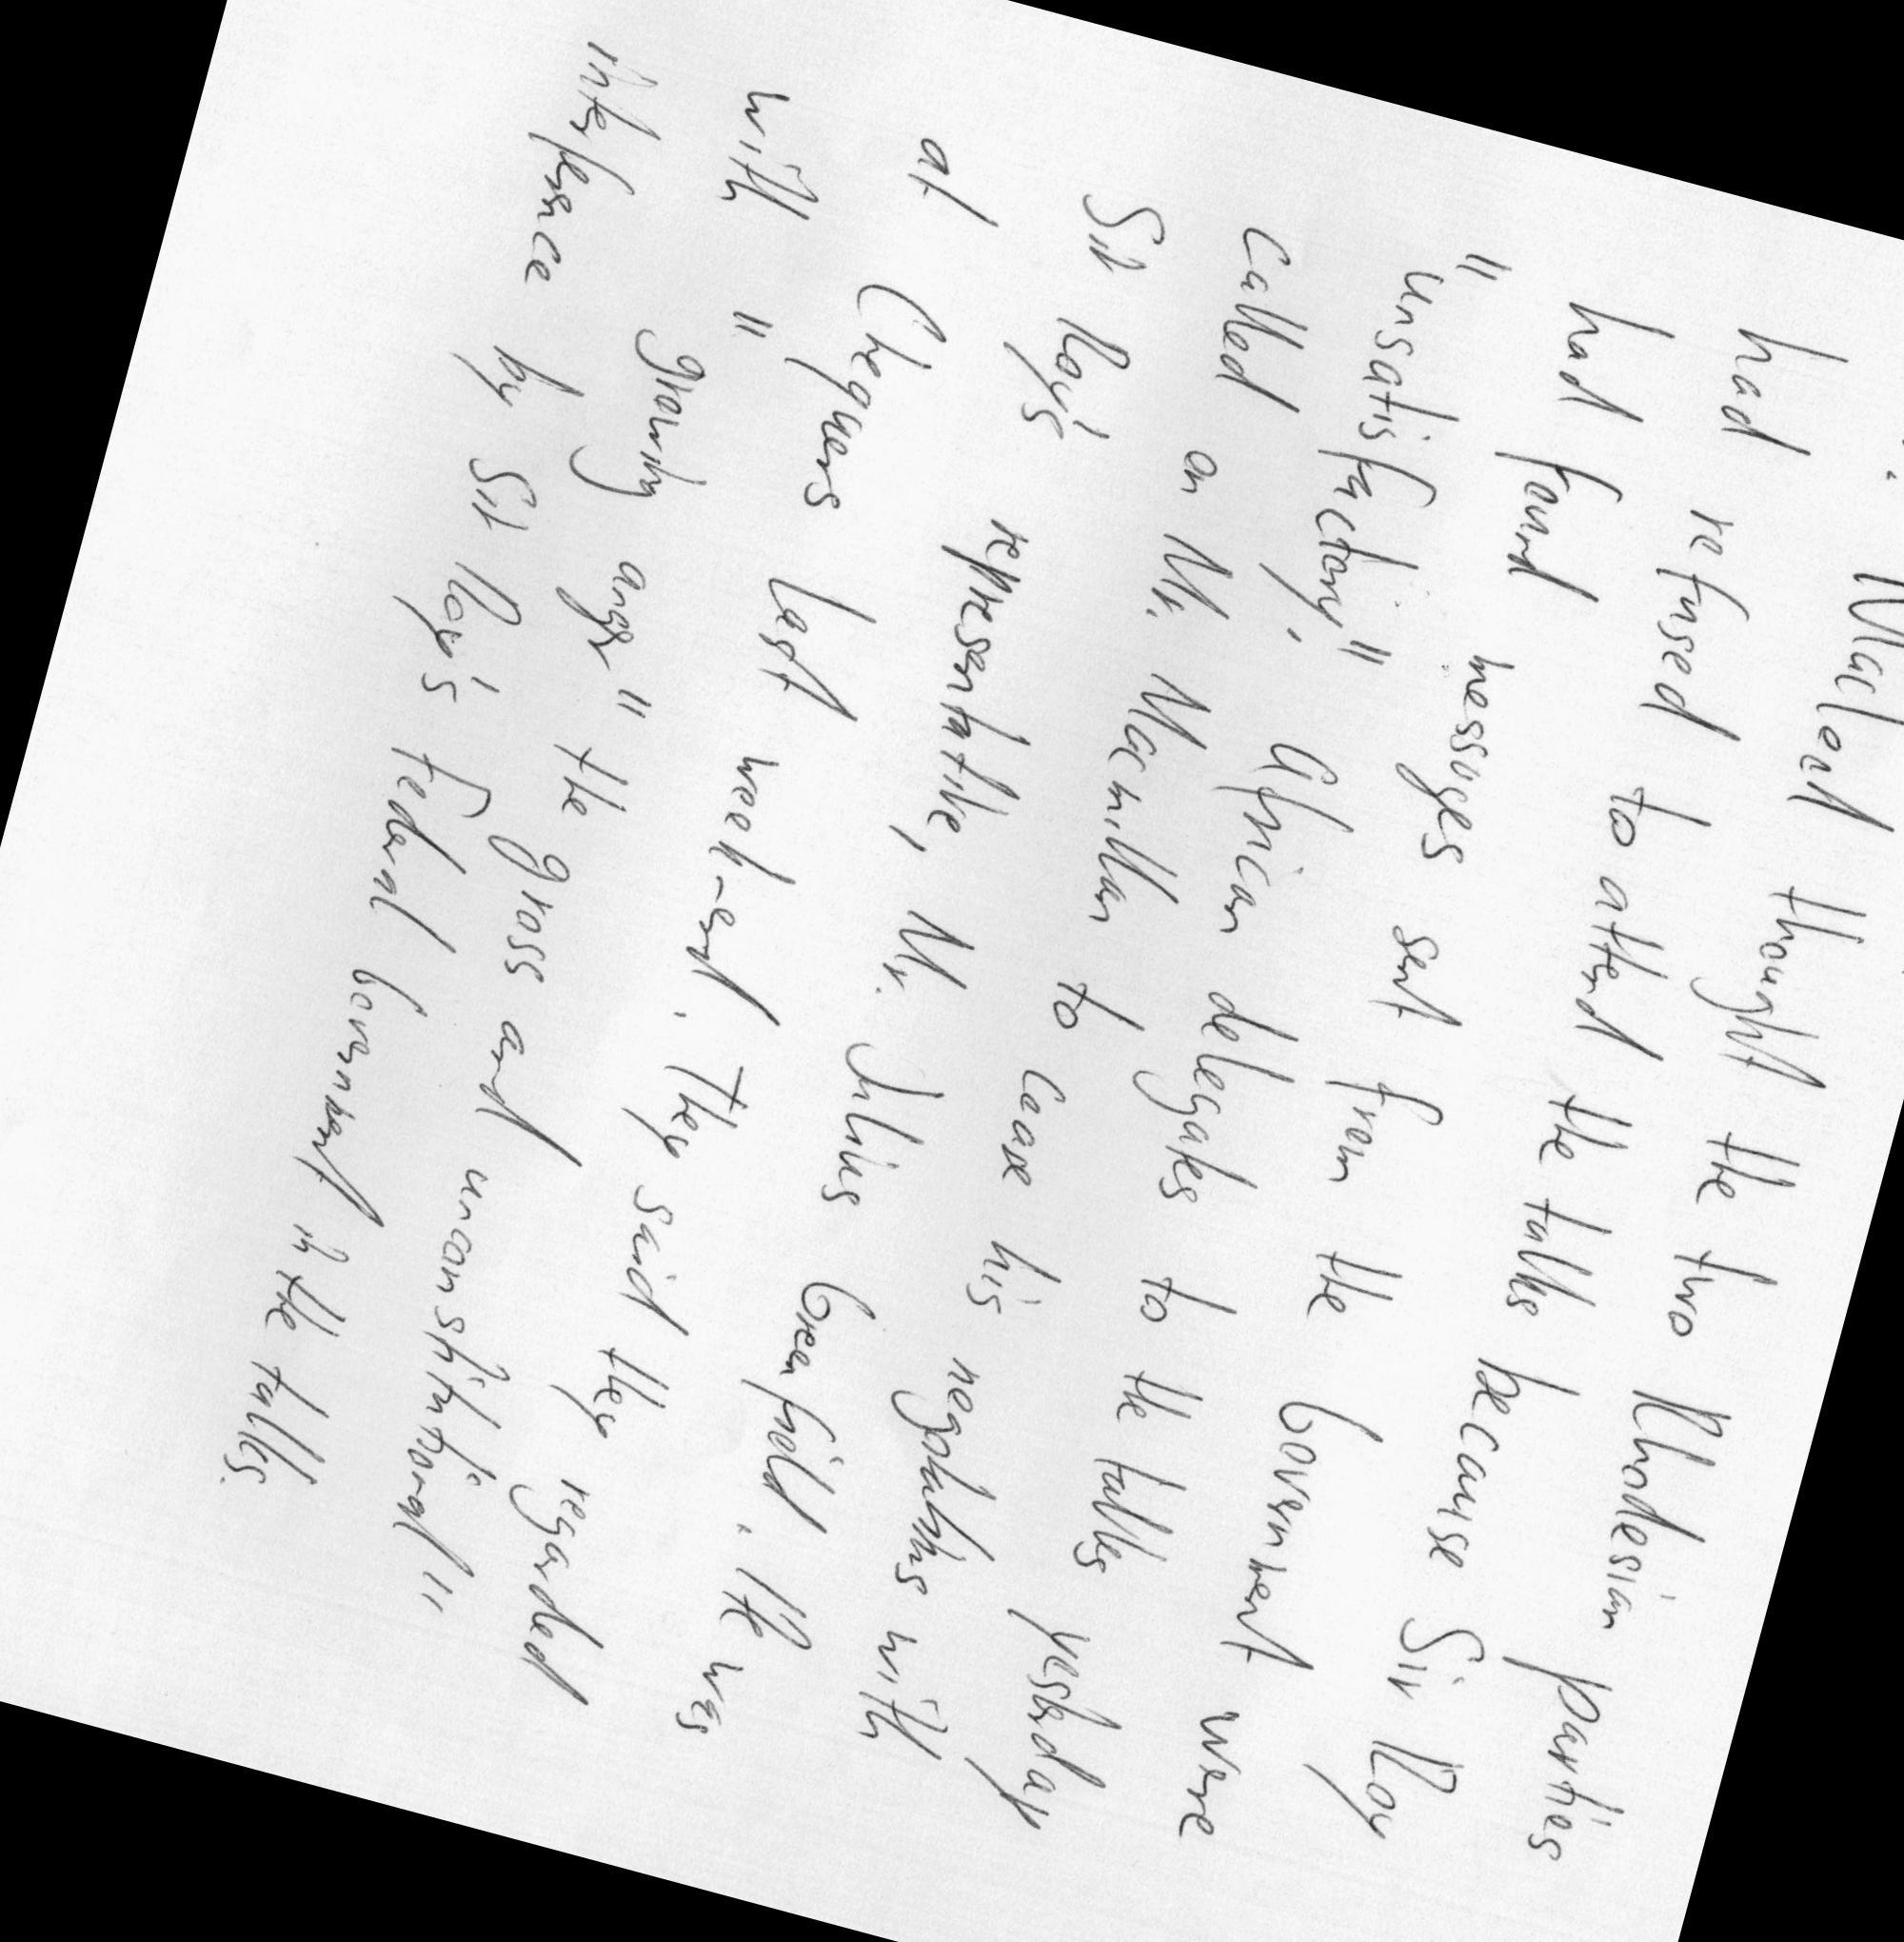 Macleod thought the two Rhodesian parties
had refused to attend the talks because Sir Roy
had found messages sent from the Government were
"unsatisfactory". African delegates to the talks yesterday
called on Mr. Macmillan to cease his negotiations with
Sir Roy's representative, Mr. Julius Greenfield. He was
at Chequers last week-end. They said they regarded
with "growing anger" the gross and unconstitutional"
interference by Sir Roy's Federal Government in the talks.